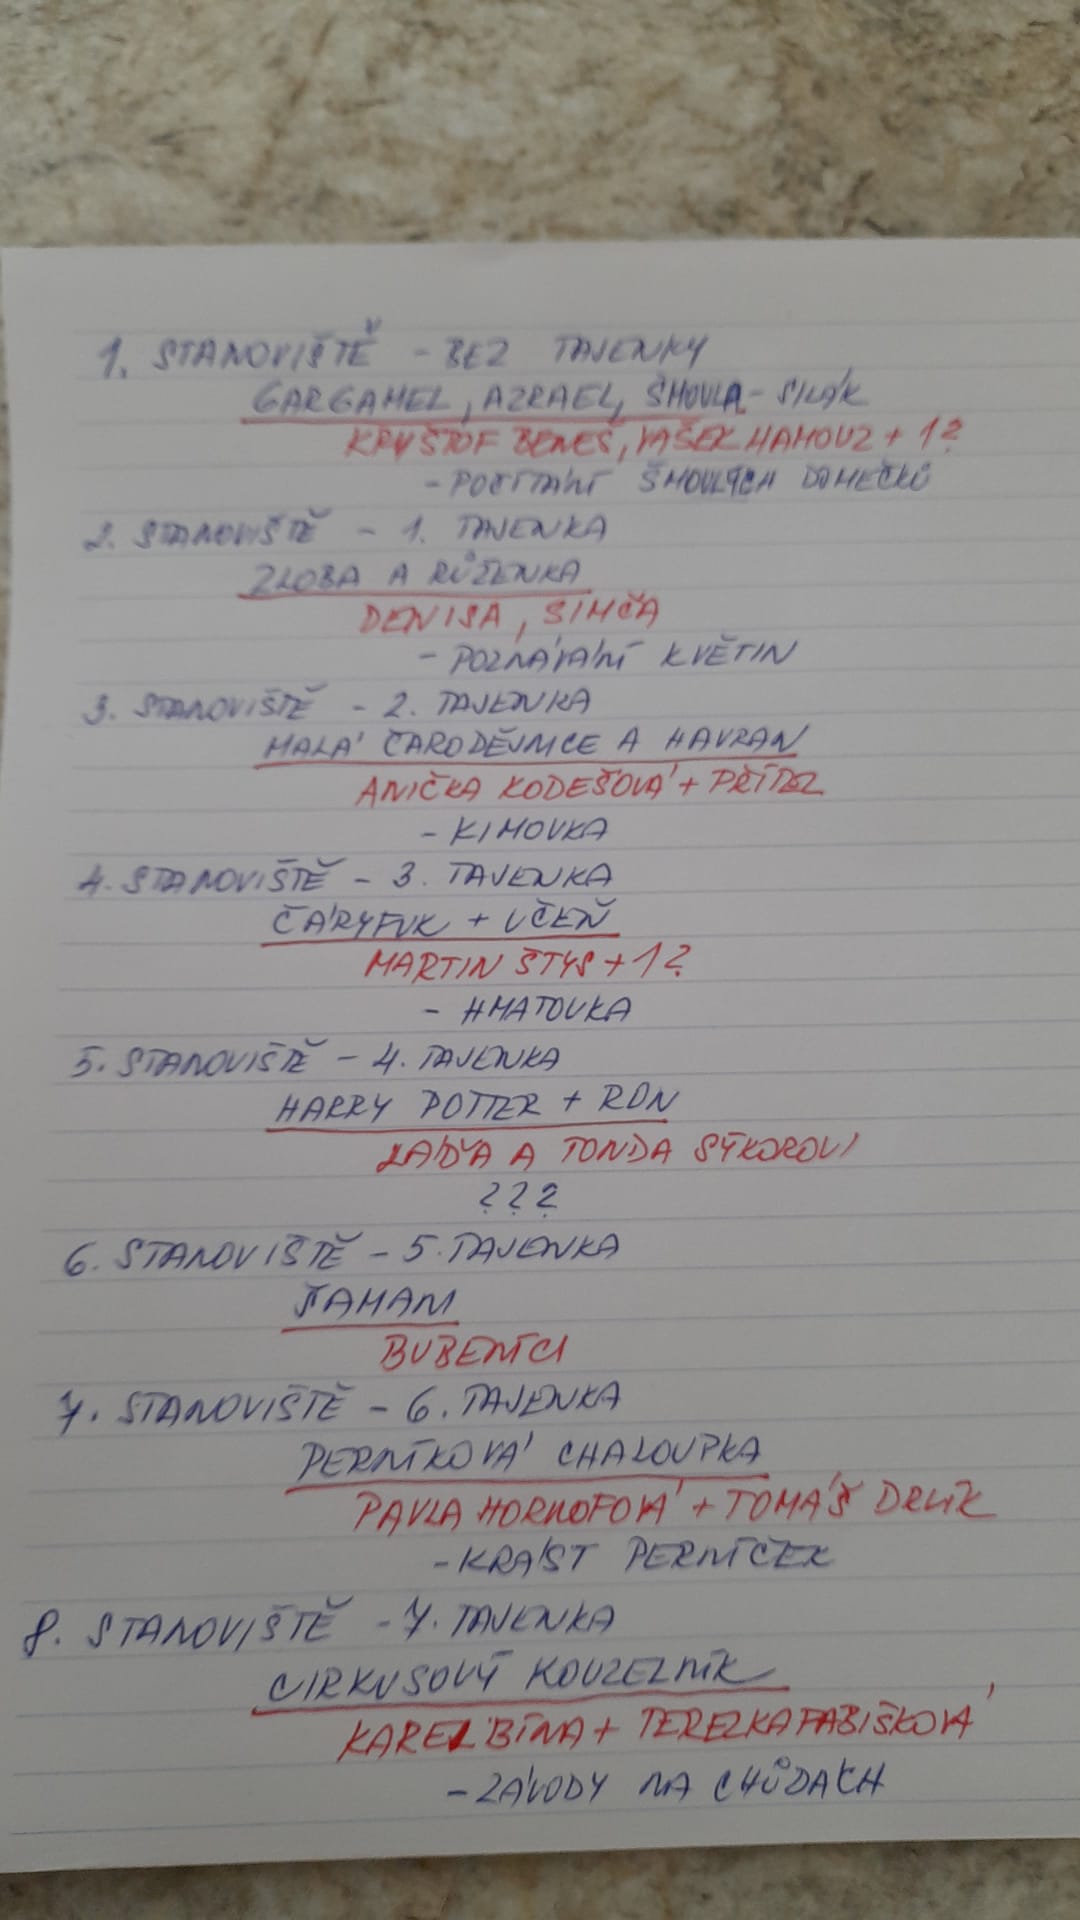 1. STANOVIŠTĚ - BEZ TAJENKY
GARGAMEL, AZRAEL, ŠMOULA - SILÁK
KRYŠTOF BENEŠ, VAŠEK HAMOUZ + 1?
- POČÍTÁNÍ ŠMOULÍCH DOMEČKŮ
2. STANOVIŠTĚ - 1. TAJENKA
ZLOBA A RŮŽENKA
DENISA, SIMČA
- POZNÁVÁNÍ KVĚTIN
3. STANOVIŠTĚ - 2. TAJENKA
MALÁ ČARODĚJNICE A HAVRAN
ANIČKA KODEŠOVÁ + PŘÍTEL
- KIMOVKA
4. STANOVIŠTĚ - 3. TAJENKA
ČÁRYFUK + UČEŇ
MARTIN ŠTYS + 1?
- HMATOVKA
5. STANOVIŠTĚ - 4. TAJENKA
HARRY POTTER + RON
LÁĎA A TONDA SÝKOROVI
???
6. STANOVIŠTĚ - 5. TAJENKA
ŠAMAN
BUBENÍCI
7. STANOVIŠTĚ - 6. TAJENKA
PERNÍKOVÁ CHALOUPKA
PAVLA HORNOFOVÁ + TOMÁŠ DRLÍK
- KRÁST PERNÍČEK
8. STANOVIŠTĚ - 7. TAJENKA
CIRKUSOVÝ KOUZELNÍK
KAREL BÍNA + TEREZKA FABIŠKOVÁ
- ZÁVODY NA CHŮDÁCH